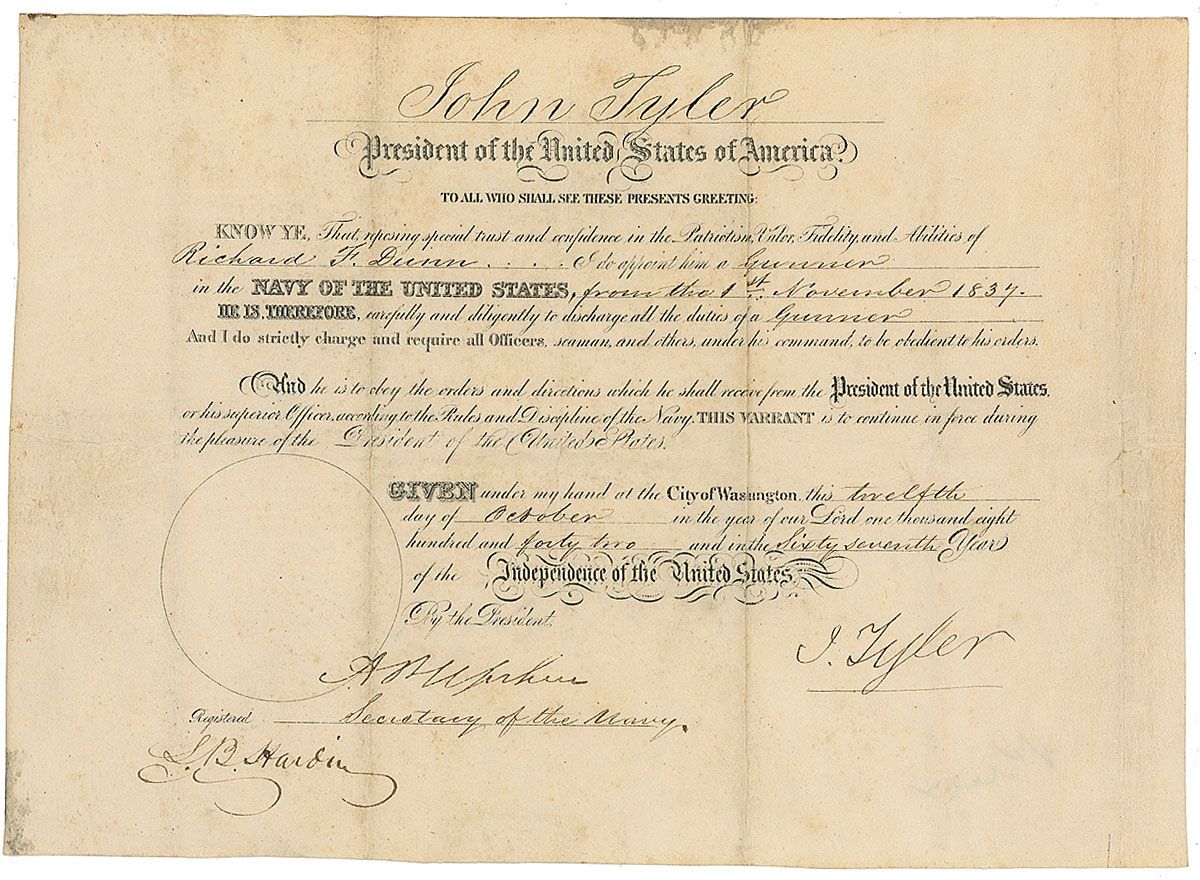 John Tyler
President of the United States of America.
TO ALL WHO SHALL SEE THESE PRESENTS GREETING:
KNOW YE, That, reposing special trust and confidence in the Patriotism, Valor, Fidelity, and Abilities of
Richard F. Dunn . . . . I do appoint him a Gunner
in the NAVY OF THE UNITED STATES, from the 1st. November 1837.
HE IS, THEREFORE, carefully and diligently to discharge all the duties of a Gunner
And I do strictly charge and require all Officers, seaman, and others, under his command, to be obedient to his orders.
And he is to obey the orders and directions which he shall receive from the President of the United States,
or his superior Officer, according to the Rules and Discipline of the Navy. THIS WARRANT is to continue in force during
the pleasure of the President of the United States.
GIVEN under my hand at the City of Washington, this twelfth
day of October in the year of our Lord one thousand eight
hundred and forty two and in the Sixty seventh Year
of the Independence of the United States.
By the President,
J. Tyler
A P Upshur
Registered Secretary of the Navy.
L. B. Hardin